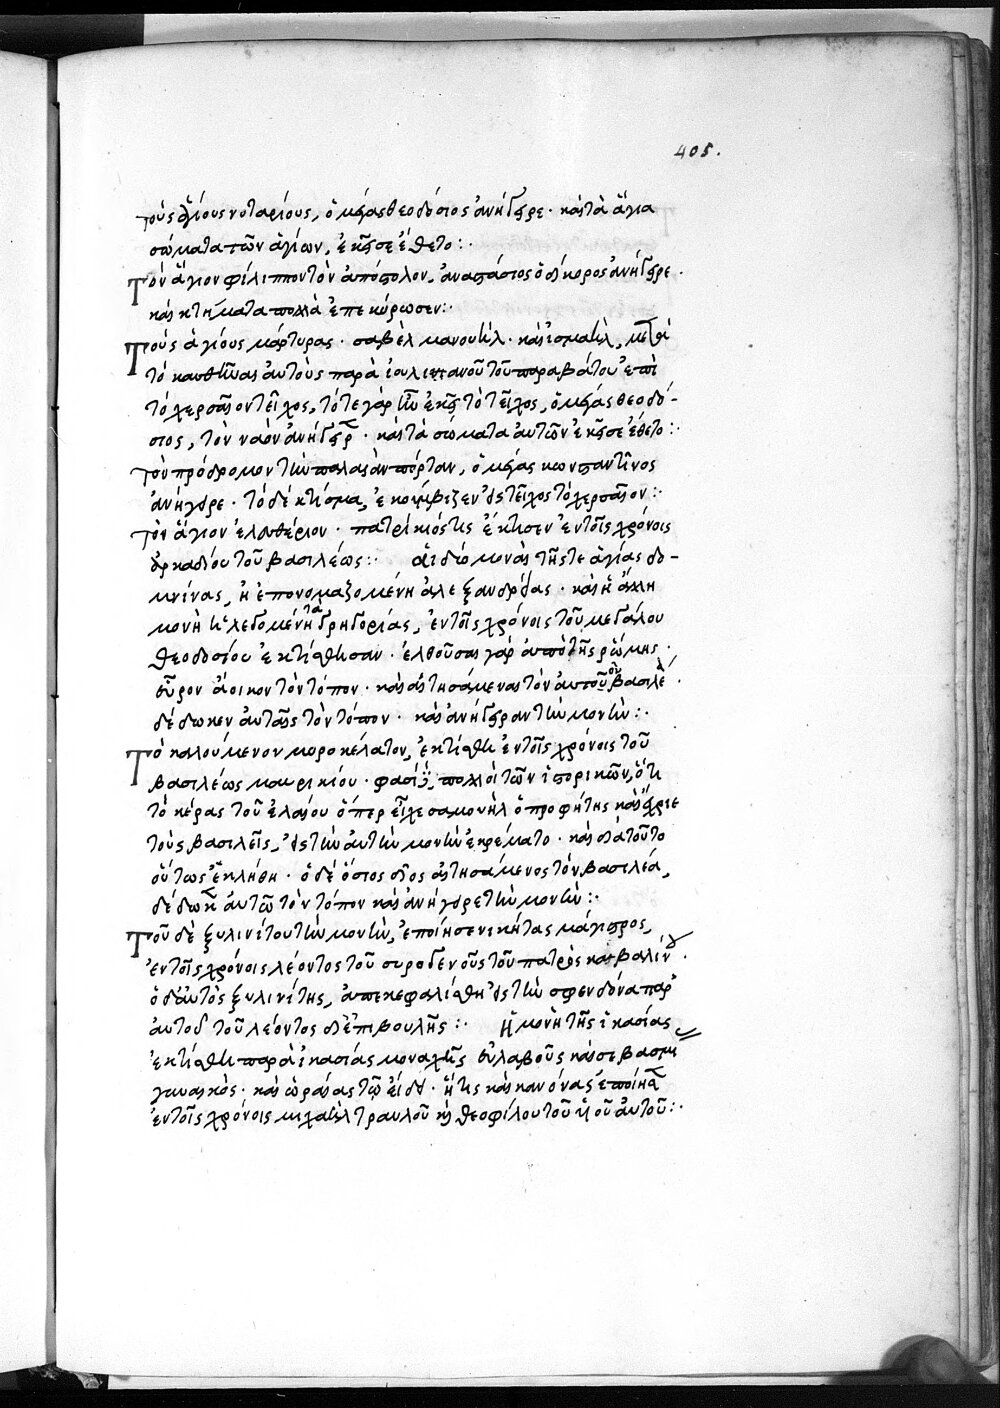 405.
τοὺς ἁγίους νοταρίους, ὁ μέγας θεοδόσιος ἀνήγειρε· καὶ τὰ ἅγια
σώματα τῶν ἁγίων, ἐκεῖσε ἔθετο:·
Τὸν ἅγιον φίλιππον τὸν ἀπόστολον, ἀναστάσιος ὁ δίκορος ἀνήγειρε.
καὶ κτήματα πολλὰ ἐπεκύρωσεν:·
Τοὺς ἁγίους μάρτυρας· σαβὲλ μανουὴλ· καὶ ἰσμαὴλ, μετὰ
τὸ καυθῆναι αὐτοὺς παρὰ ἰουλιανοῦ τοῦ παραβάτου ἐπὶ
τὸ χερσαῖον τεῖχος, τότε γὰρ ἦν ἐκεῖ τὸ τεῖχος, ὁ μέγας θεοδό-
σιος, τὸν ναὸν ἀνήγειρε· καὶ τὰ σώματα αὐτῶν ἐκεῖσε ἔθετο:·
τὸν πρόδρομον τὴν παλαιὰν πόρταν, ὁ μέγας κωνσταντῖνος
ἀνήγειρε· τὸ δὲ κτίσμα, ἐκουμβιζεν εἰς τεῖχος τὸ χερσαῖον:·
τὸν ἅγιον ἐλευθέριον· πατρίκιός τις ἔκτισεν ἐν τοῖς χρόνοις
ἀρκαδίου τοῦ βασιλέως:· αἱ δύο μοναὶ τῆς τε ἁγίας δο-
μνίνας, ἡ ἐπονομαζομένη ἀλεξανδρείας· καὶ ἡ ἄλλη
μονὴ ἡ λεγομένη τὰ γρηγορίας, ἐν τοῖς χρόνοις τοῦ μεγάλου
θεοδοσίου ἐκτίσθησαν· ἐλθοῦσαι γὰρ ἀπὸ τῆς ῥώμης·
εὗρον ἄοικον τὸν τόπον· καὶ αἰτησάμεναι τὸν αὐτὸν βασιλέα·
δέδωκεν αὐταῖς τὸν τόπον· καὶ ἀνήγειραν τὴν μονὴν:·
Τὸ καλούμενον μοροκέλατον, ἐκτίσθη ἐν τοῖς χρόνοις τοῦ
βασιλέως μαυρικίου· φασὶ πολλοὶ τῶν ἱστορικῶν, ὅτι
τὸ κέρας τοῦ ἐλαίου ὅπερ εἶχε σαμουὴλ ὁ προφήτης καὶ ἔχριε
τοὺς βασιλεῖς, εἰς τὴν αὐτὴν μονὴν ἐκρέματο· καὶ διὰ τοῦτο
οὕτως ἐκλήθη· ὁ δὲ ὅσιος αἰτησάμενος τὸν βασιλέα,
δέδωκεν αὐτῷ τὸν τόπον καὶ ἀνήγειρε τὴν μονὴν:·
Τοῦ δὲ ξυλινίτου τὴν μονὴν, ἐποίησε νικήτας μάγιστρος,
ἐν τοῖς χρόνοις λέοντος τοῦ συρογενοῦς τοῦ πατρὸς καβαλίνου.
ὁ δὲ αὐτὸς ξυλινίτης, ἀπεκεφαλίσθη εἰς τὴν σφενδόνα παρ'
αὐτοῦ τοῦ λέοντος δι' ἐπιβουλῆς:· ἡ μονὴ τῆς ἰκασίας
ἐκτίσθη παρὰ ἰκασίας μοναχῆς εὐλαβοῦς καὶ σεβασμί
γυναικὸς· καὶ ὡραίας τῷ εἴδει· ἥτις καὶ κανόνας ἐποίησε
ἐν τοῖς χρόνοις μιχαὴλ τραυλοῦ καὶ θεοφίλου τοῦ υἱοῦ αὐτοῦ:·